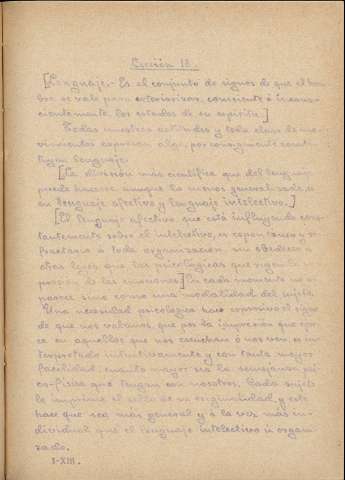 Lección 18.
[Lenguaje.- Es el conjunto de signos de que el hom-
bre se vale para exteriorizar, consciente ó incons-
cientemente, los estados de su espíritu.]
Todas nuestras actitudes y toda clase de mo-
vimientos expresan algo, por consiguiente consti-
tuyen lenguaje.
[La división más científica que del lenguaje
puede hacerse aunque la menos general sea, es
en lenguaje afectivo y lenguaje intelectivo.]
[El lenguaje afectivo, que está influyendo cons-
tantemente sobre el intelectivo, es espontáneo y re-
fractario á toda organización, no obedece á
otras leyes que las psicológicas que rigen la ex-
presión de las emociones.] En cada momento no a-
parece sino como una modalidad del sujeto.
Una necesidad psicológica hace expresivo el signo
de que nos valemos, que por la impresión que ejer-
ce en aquellos que nos escuchan ó nos ven, es in-
terpretado intuitivamente y con tanta mayor
facilidad, cuanto mayor sea la semejanza psi-
co-física que tengan con nosotros. Cada sujeto
le imprime el sello de su originalidad, y esto
hace que sea más general y á la vez más in-
dividual que el lenguaje intelectivo ú organi-
zado.
I-XIII.